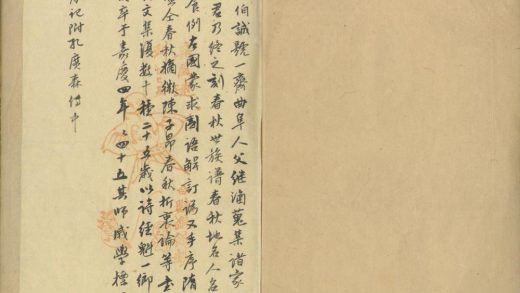 伯誠號一齋曲阜人父继涵蒐集諸家
君乃終之刻春秋世族譜春秋地名人名
食例左國蒙求國語解訂譌又手序隋
全春秋摘微陳子昂春秋折衷論等書
文集復數十種二十五歲以詩經魁一鄉
卒于嘉慶四年四十五其師戚學標
記附孔廣森傳中